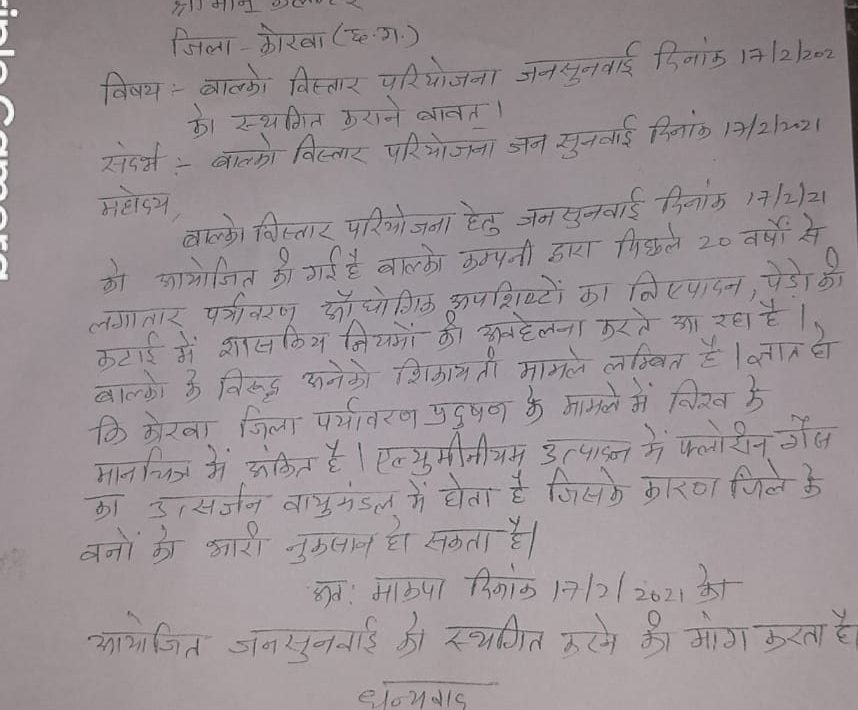 श्री मान् कलेक्टर
जिला - कोरबा (छ.ग.)
विषय :- बाल्को विस्तार परियोजना जनसुनवाई दिनांक 17/2/202
को स्थगित कराने बाबत् ।
संदर्भ :- बाल्को विस्तार परियोजना जन सुनवाई दिनांक 17/2/2021
महोदय,
बाल्को विस्तार परियोजना हेतु जनसुनवाई दिनांक 17/2/21
को आयोजित की गई है बाल्को कम्पनी द्वारा पिछले 20 वर्षों से
लगातार पर्यावरण औद्योगिक अपशिष्टों का निष्पादन, पेड़ो की
कटाई में शासकिय नियमों की अवहेलना करते आ रहा है ।
बाल्को के विरूद्ध अनेको शिकायती मामले लम्बित है । ज्ञात हो
कि कोरबा जिला पर्यावरण प्रदुषण के मामले में विश्व के
मानचित्र में अंकित है । एल्युमीनीयम उत्पादन में फ्लोरीन गैस
का उत्सर्जन वायुमंडल में होता है जिसके कारण जिले के
वनों को भारी नुकसान हो सकता है।
अत: माकपा दिनांक 17/2/2021 को
आयोजित जनसुनवाई को स्थगित करने की मांग करता है।
धन्यवाद